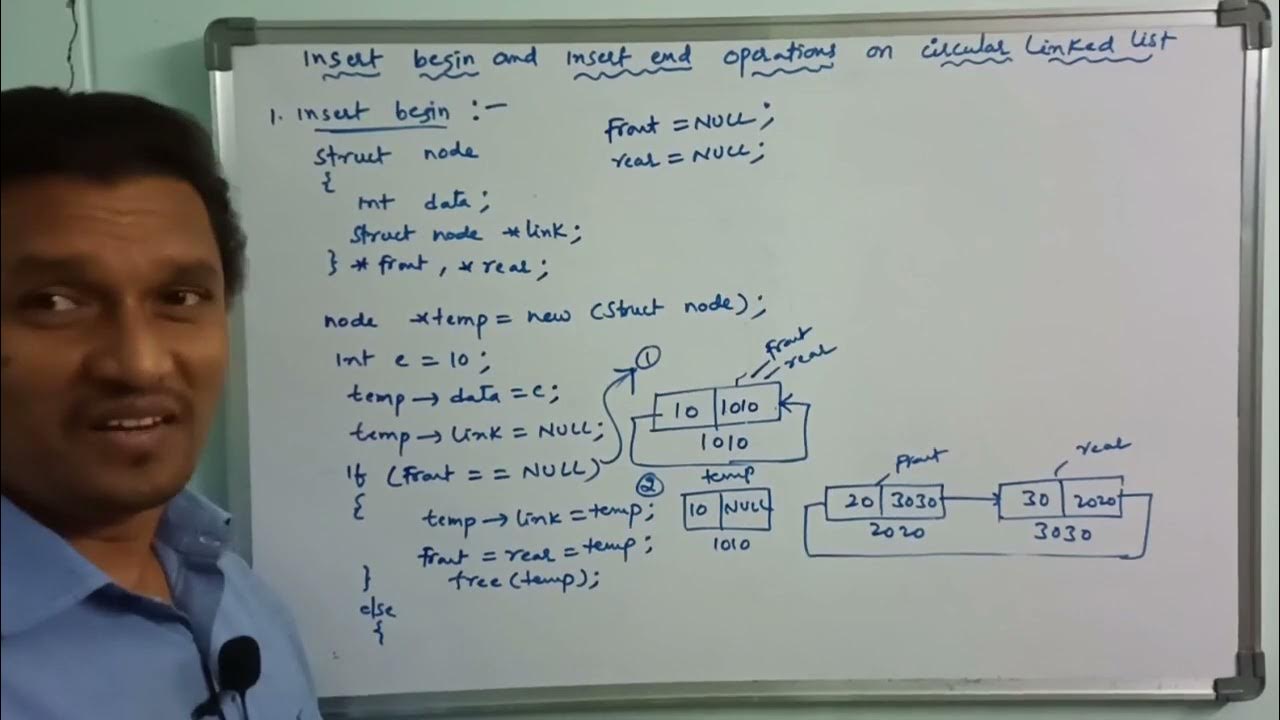 Insert begin and Insert end operations on circular Linked list
1. Insert begin :-
Front = NULL;
rear = NULL;
struct node
{
int data;
struct node *link;
} *front, *rear;
node *temp = new (struct node);
int e = 10;
temp → data = e;
temp → link = NULL;
If (Front == NULL)
{
temp → link = temp;
front = rear = temp;
free(temp);
}
else
{
1
front
rear
10 1010
1010
2
temp
10 NULL
1010
Front
20 3030
2020
rear
30 2020
3030